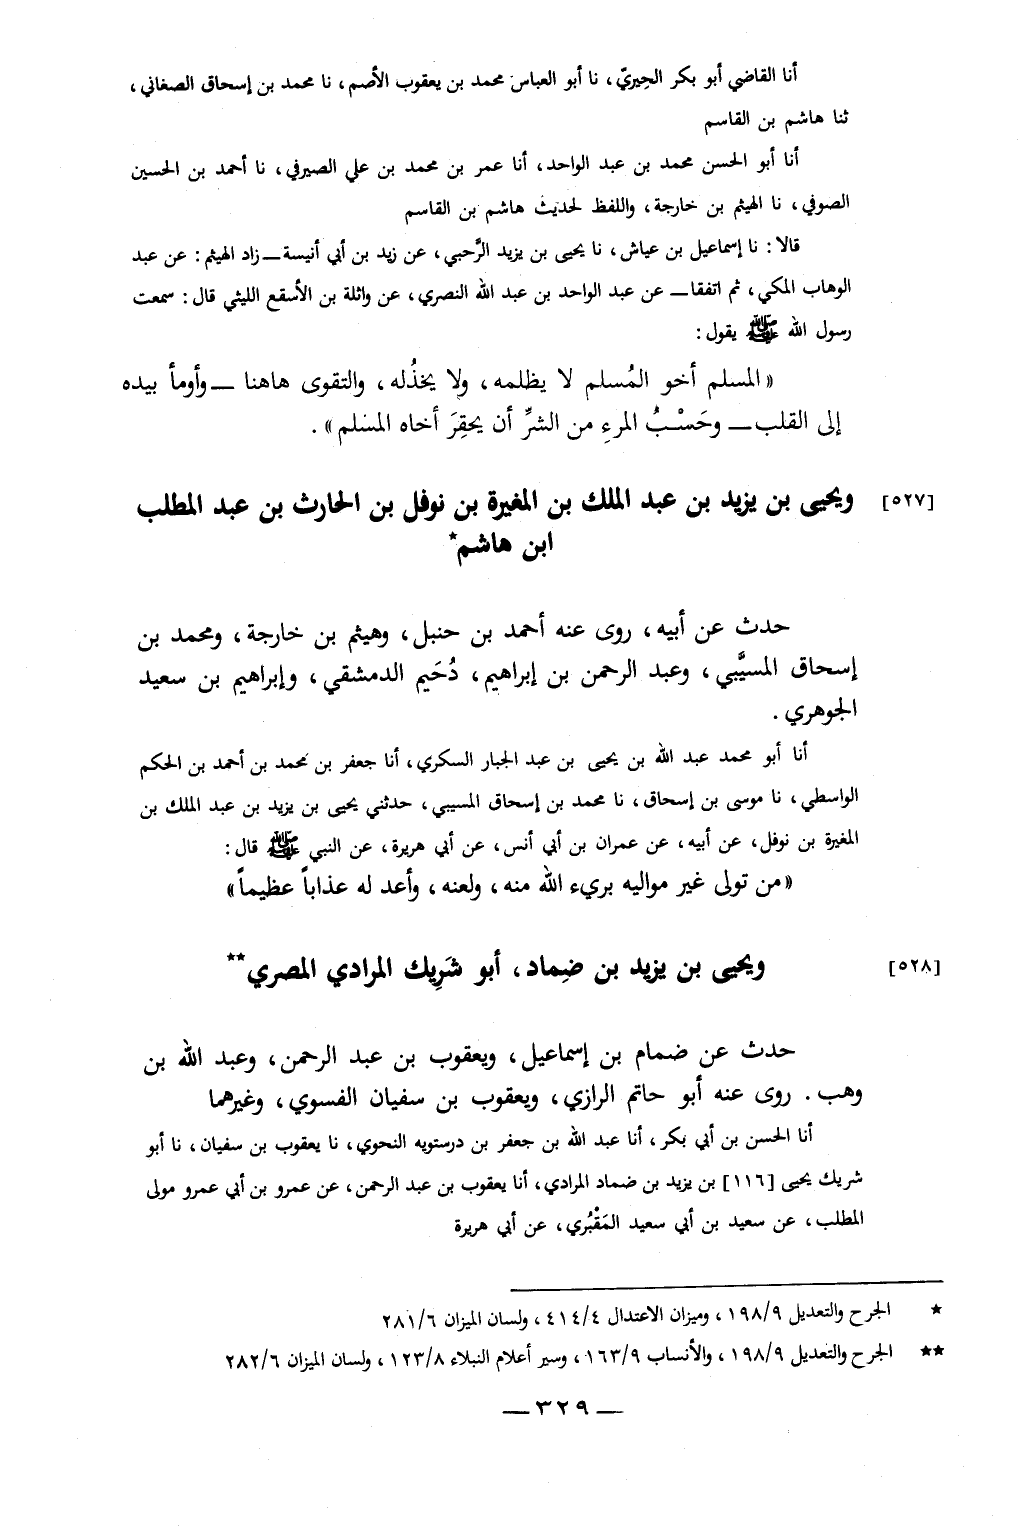 أنا القاضي أبو بكر الحِيريّ، نا أبو العباس محمد بن يعقوب الأصم، نا محمد بن إسحاق الصغاني،
ثنا هاشم بن القاسم
أنا أبو الحسن محمد بن عبد الواحد، أنا عمر بن محمد بن علي الصيرفي، نا أحمد بن الحسين
الصوفي، نا الهيثم بن خارجة، واللفظ لحديث هاشم بن القاسم
قالا: نا إسماعيل بن عياش، نا يحيى بن يزيد الرَّحبي، عن زيد بن أبي أنيسة ــ زاد الهيثم: عن عبد
الوهاب المكي، ثم اتفقا ــ عن عبد الواحد بن عبد الله النصري، عن واثلة بن الأسقع الليثي قال: سمعت
رسول الله ﷺ يقول:
«المسلم أخو المُسلم لا يظلمه، ولا يخذُله، والتقوى هاهنا ــ وأومأ بيده
إلى القلب ــ وحَسْبُ المرءِ من الشرِّ أن يحقِرَ أخاه المسلم».
[٥٢٧] ويحيى بن يزيد بن عبد الملك بن المغيرة بن نوفل بن الحارث بن عبد المطلب
ابن هاشم*
حدث عن أبيه، روى عنه أحمد بن حنبل، وهيثم بن خارجة، ومحمد بن
إسحاق المسيَّبي، وعبد الرحمن بن إبراهيم، دُحَيم الدمشقي، وإبراهيم بن سعيد
الجوهري.
أنا أبو محمد عبد الله بن يحيى بن عبد الجبار السكري، أنا جعفر بن محمد بن أحمد بن الحكم
الواسطي، نا موسى بن إسحاق، نا محمد بن إسحاق المسيبي، حدثني يحيى بن يزيد بن عبد الملك بن
المغيرة بن نوفل، عن أبيه، عن عمران بن أبي أنس، عن أبي هريرة، عن النبي ﷺ قال:
«من تولى غير مواليه بريء الله منه، ولعنه، وأعد له عذاباً عظيماً»
[٥٢٨] ويحيى بن يزيد بن ضِماد، أبو شَرِيك المرادي المصري**
حدث عن ضمام بن إسماعيل، ويعقوب بن عبد الرحمن، وعبد الله بن
وهب. روى عنه أبو حاتم الرازي، ويعقوب بن سفيان الفسوي، وغيرهما
أنا الحسن بن أبي بكر، أنا عبد الله بن جعفر بن درستويه النحوي، نا يعقوب بن سفيان، نا أبو
شريك يحيى [١١٦] بن يزيد بن ضماد المرادي، أنا يعقوب بن عبد الرحمن، عن عمرو بن أبي عمرو مولى
المطلب، عن سعيد بن أبي سعيد المَقْبُري، عن أبي هريرة
* الجرح والتعديل ١٩٨/٩، وميزان الاعتدال ٤١٤/٤، ولسان الميزان ٢٨١/٦
** الجرح والتعديل ١٩٨/٩، والأنساب ١٦٣/٩، وسير أعلام النبلاء ١٢٣/٨، ولسان الميزان ٢٨٢/٦
ــ ٣٢٩ ــ